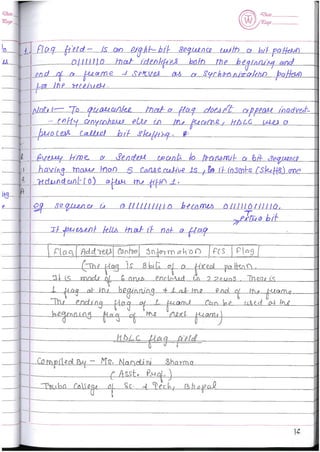 Date
Page
Flag field - is an eight-bit sequence with a bit pattern
01111110 that identifies both the beginning and
end of a frame & serves as a synchronization pattern
for the receiver.
Note:- To guarantee that a flag doesn't appear inadvert-
-ently anywhere else in the frame, HDLC uses a
process called bit stuffing.
Every time a sender wants to transmit a bit sequence
having more than 5 consecutive 1s, it inserts (stuffs) one
redundant (0) after the fifth 1.
eg sequence 01111111110 becomes 0111110111110.
extra bit
It present tells that it not a flag
Flag Address Control Information FCS Flag
(The flag is 8 bits of a fixed pattern.
It is made of 6 ones enclosed in 2 zeros. There is
1 flag at the beginning & 1 at the end of the frame.
The ending flag of 1 frame can be used as the
beginning flag of the next frame)
HDLC flag field
Compiled By - Ms. Nandini Sharma
(Asst. Prof.)
Truba College of Sc. & Tech, Bhopal
16